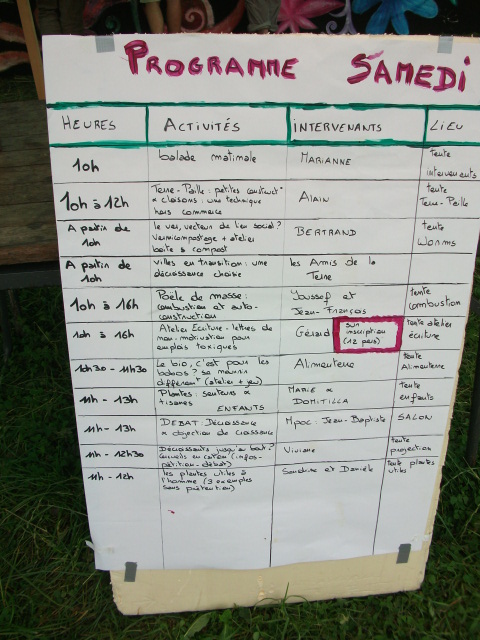 PROGRAMME SAMEDI
HEURES ACTIVITÉS INTERVENANTS LIEU
10h balade matinale MARIANNE tente intervenants
10h à 12h Terre-Paille: petites construct° & cloisons: une technique hors commerce ALAIN tente Terre-Paille
A partir de 10h le ver, vecteur de lien social? vermicompostage + atelier boîte à compost BERTRAND tente WORMS
A partir de 10h villes en transition: une décroissance choisie les Amis de la Terre
10h à 16h Poêle de masse: combustion et auto-construction Youssef et Jean-François tente combustion
10h à 16h Atelier Ecriture - lettres de non-motivation pour emplois toxiques Gérard sur inscription (12 pers) tente atelier écriture
10h30 - 11h30 Le bio, c'est pour les bobos? se nourrir différent (atelier + jeu) Alimenterre tente Alimenterre
11h - 13h Plantes: senteurs & tisanes ENFANTS MARIE & DOMITILLA tente enfants
11h - 13h DEBAT: Décroissance & objection de croissance Mpoc: Jean-Baptiste SALON
11h - 12h30 Décroissants jusqu'au bout? (infos-pétition-débat) Viviane tente projection
11h - 12h les plantes utiles à l'homme (3 exemples sans prétention) et Danièle tente plantes utiles